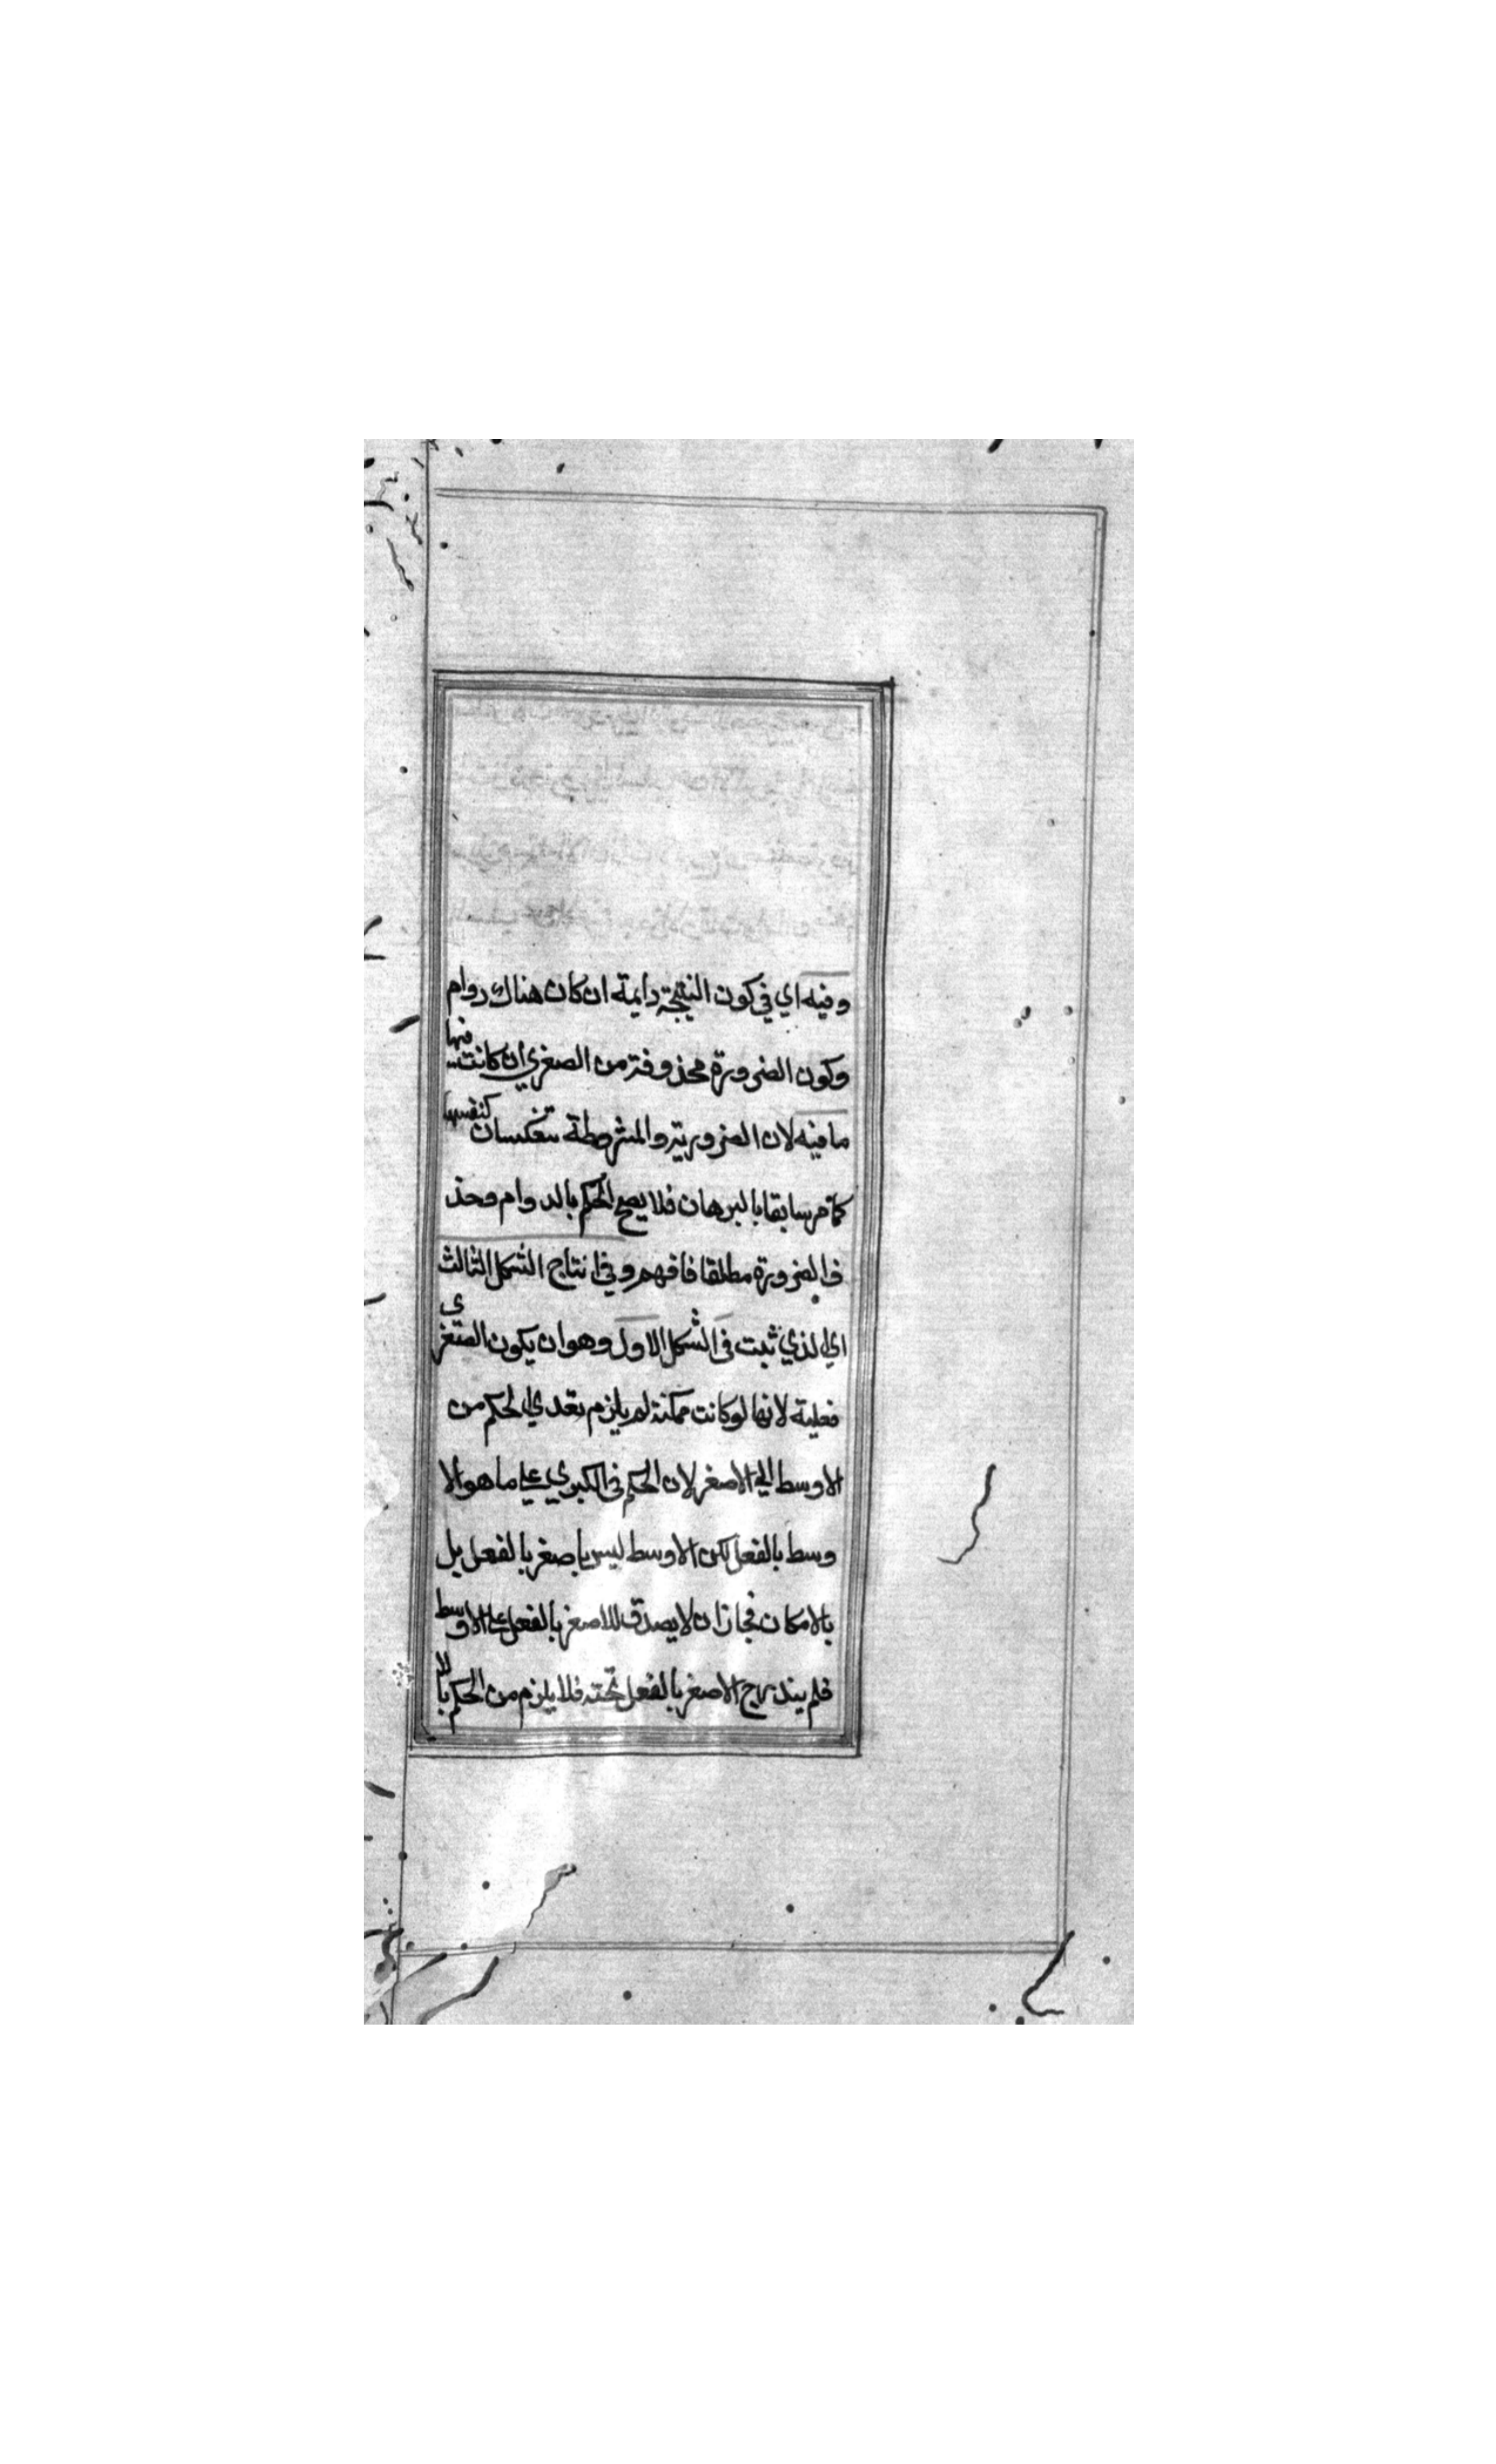 وفيه اي في كون النتيجة دايمة ان كان هناك دوام
وكون الضرورة محذوفة من الصغري ان كانت فيها
ما فيه لان الضرورية والمشروطة تنعكسان كنفسها
كما مر سابقا بالبرهان فلا يصح الحكم بالدوام وحذ
ف الضرورة مطلقا فافهم وفي انتاج الشكل الثالث
اي الذي ثبت في الشكل الاول وهو ان يكون الصغري
فعلية لانها لو كانت ممكنة لم يلزم تعدي الحكم من
الاوسط الي الاصغر لان الحكم في الكبري علي ما هو الا
وسط بالفعل لكن الاوسط ليس باصغر بالفعل بل
بالامكان فجاز ان لا يصدق للاصغر بالفعل علي الاوسط
فلم يندرج الاصغر بالفعل تحته فلا يلزم من الحكم بالا